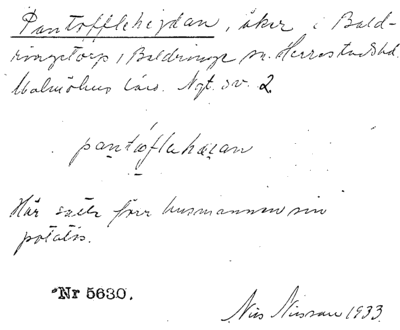 Pantofflehejdan, åker i Bald-
ringetorp i Baldringe sn. Herrestadshd.
Malmöhus län. Ngt. sv. 2
pantofflehæran
Här satte förr husmannen sin
potatis.
Nr 5630.
Nils Nilsson 1933.